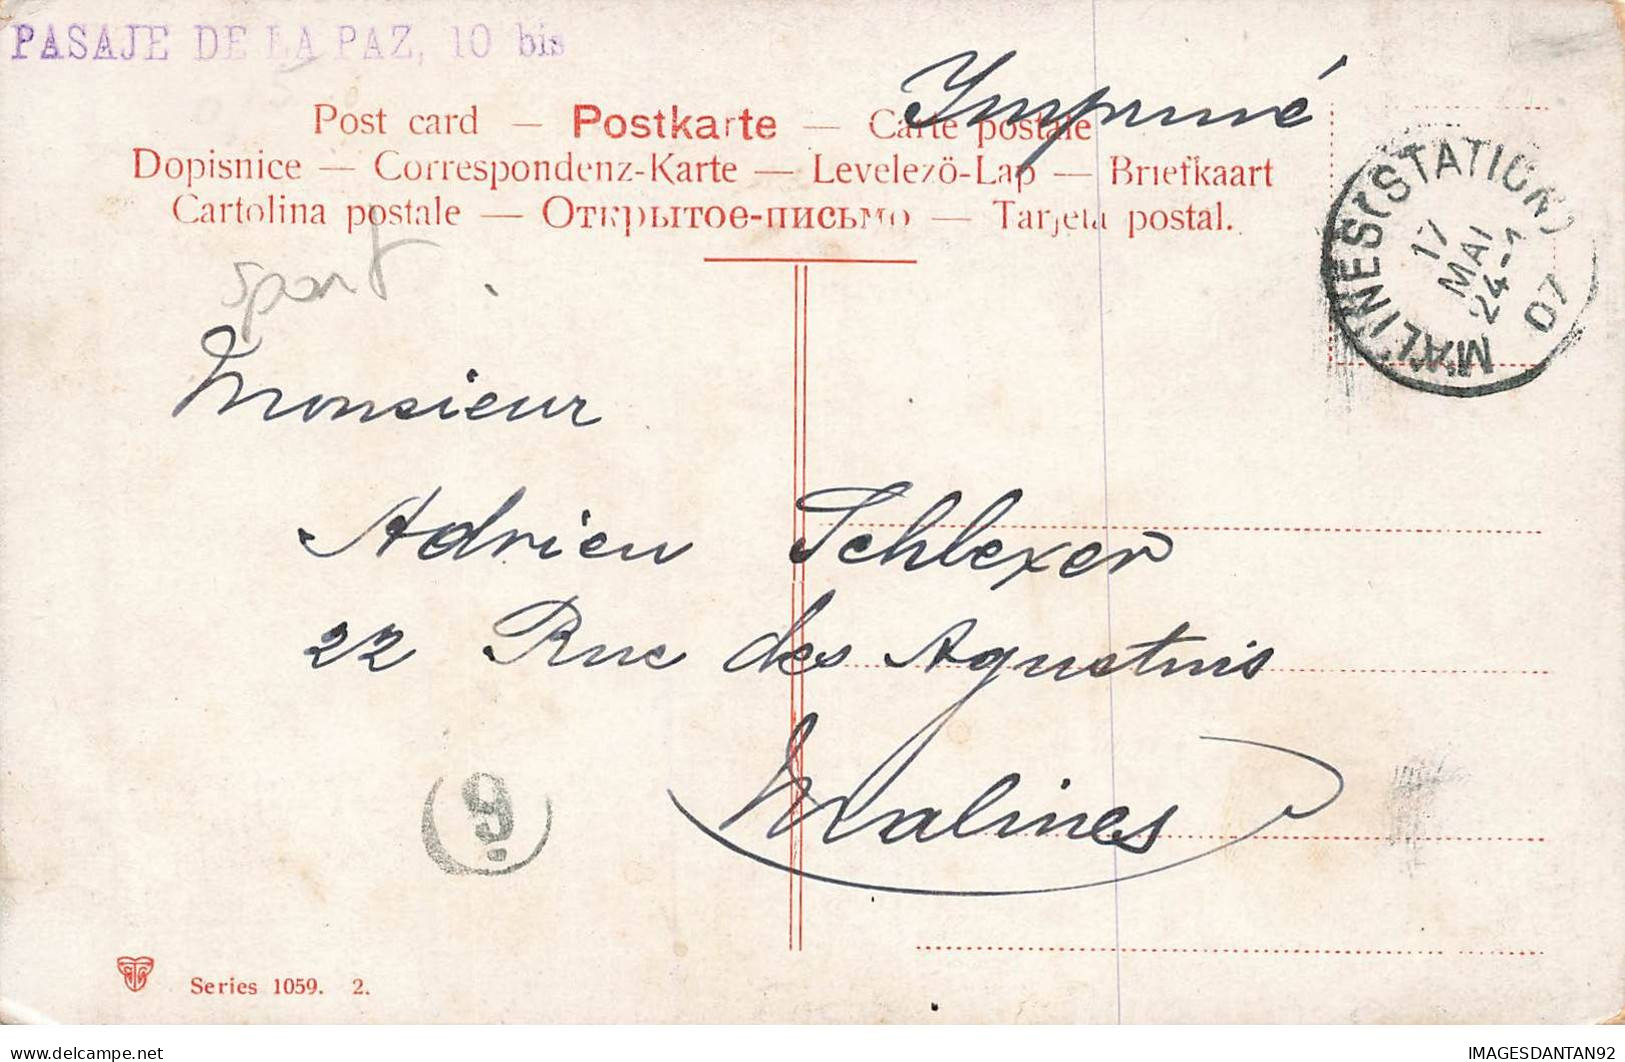 PASAJE DE LA PAZ, 10 bis
Imprimé
Post card — Postkarte — Carte postale
Dopisnice — Correspondenz-Karte — Levelezö-Lap — Briefkaart
Cartolina postale — Открытое-письмо — Tarjeta postal.
MALINES (STATION)
17
MAI
24-1
07
sport
Monsieur
Adrien Schlexer
22 Rue des Agustins
Malines
9
Series 1059. 2.
IMAGESDANTAN92
delcampe.net